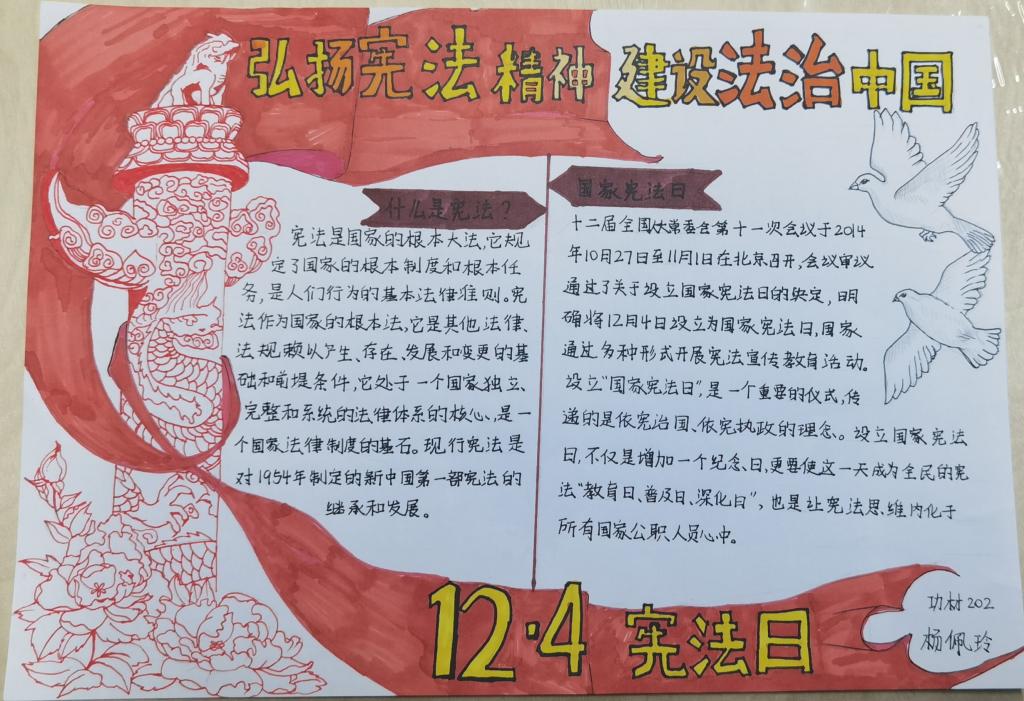 弘扬宪法精神 建设法治中国
什么是宪法？
宪法是国家的根本大法，它规
定了国家的根本制度和根本任
务，是人们行为的基本法律准则。宪
法作为国家的根本法，它是其他法律、
法规赖以产生、存在、发展和变更的基
础和前提条件，它处于一个国家独立、
完整和系统的法律体系的核心，是一
个国家法律制度的基石。现行宪法是
对1954年制定的新中国第一部宪法的
继承和发展。
国家宪法日
十二届全国人大常委会第十一次会议于2014
年10月27日至11月1日在北京召开，会议审议
通过了关于设立国家宪法日的决定，明
确将12月4日设立为国家宪法日，国家
通过多种形式开展宪法宣传教育活动。
设立“国家宪法日”，是一个重要的仪式，传
递的是依宪治国、依宪执政的理念。设立国家宪法
日，不仅是增加一个纪念日，更要使这一天成为全民的宪
法“教育日、普及日、深化日”，也是让宪法思维内化于
所有国家公职人员心中。
12·4 宪法日
功材202
杨佩玲